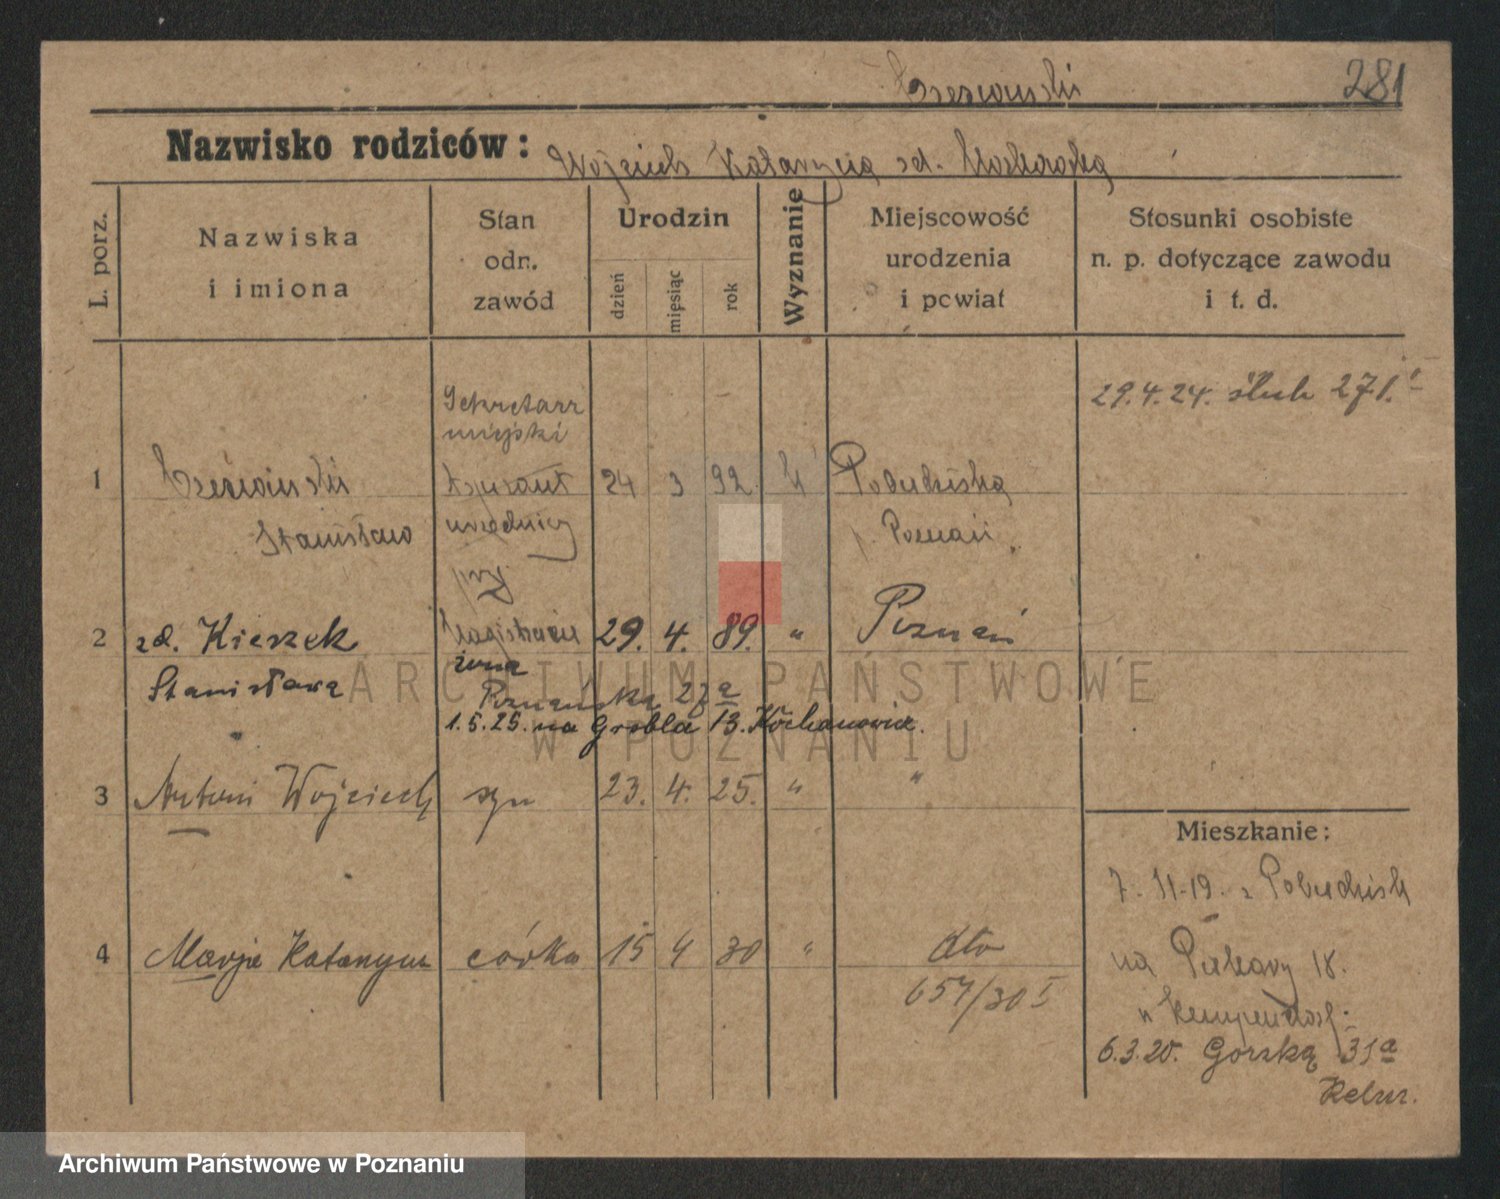 281
Nazwisko rodziców:
Wojciech Katarzyna zd.
L. porz.
Nazwiska
i imiona
Stan
odn.
zawód
Urodzin
dzień
miesiąc
rok
Wyznanie
Miejscowość
urodzenia
i powiat
Stosunki osobiste
n. p. dotyczące zawodu
i t. d.
29.4.24. ślub 271.I
Sekretarz
miejski
1
Stanisław
aspirant
urzędniczy
przy
Magistracie
24 3 92
Pobiedziska
p. Poznań
2 zd. Kierzek
Stanisława
żona
29. 4. 89. "
Poznań
Poznańska 27a
1.5.25. na Grobla 13. Kochanowicz.
3 Antoni Wojciech syn 23. 4. 25. " "
4 Marja Katarzyna córka 15 4 30 " dto
657/30 I
Mieszkanie:
7. 11-19. z Pobiedzisk
na Piekary 18.
6.3.20. Górską 31a
ARCHIWUM PAŃSTWOWE
W POZNANIU
Archiwum Państwowe w Poznaniu